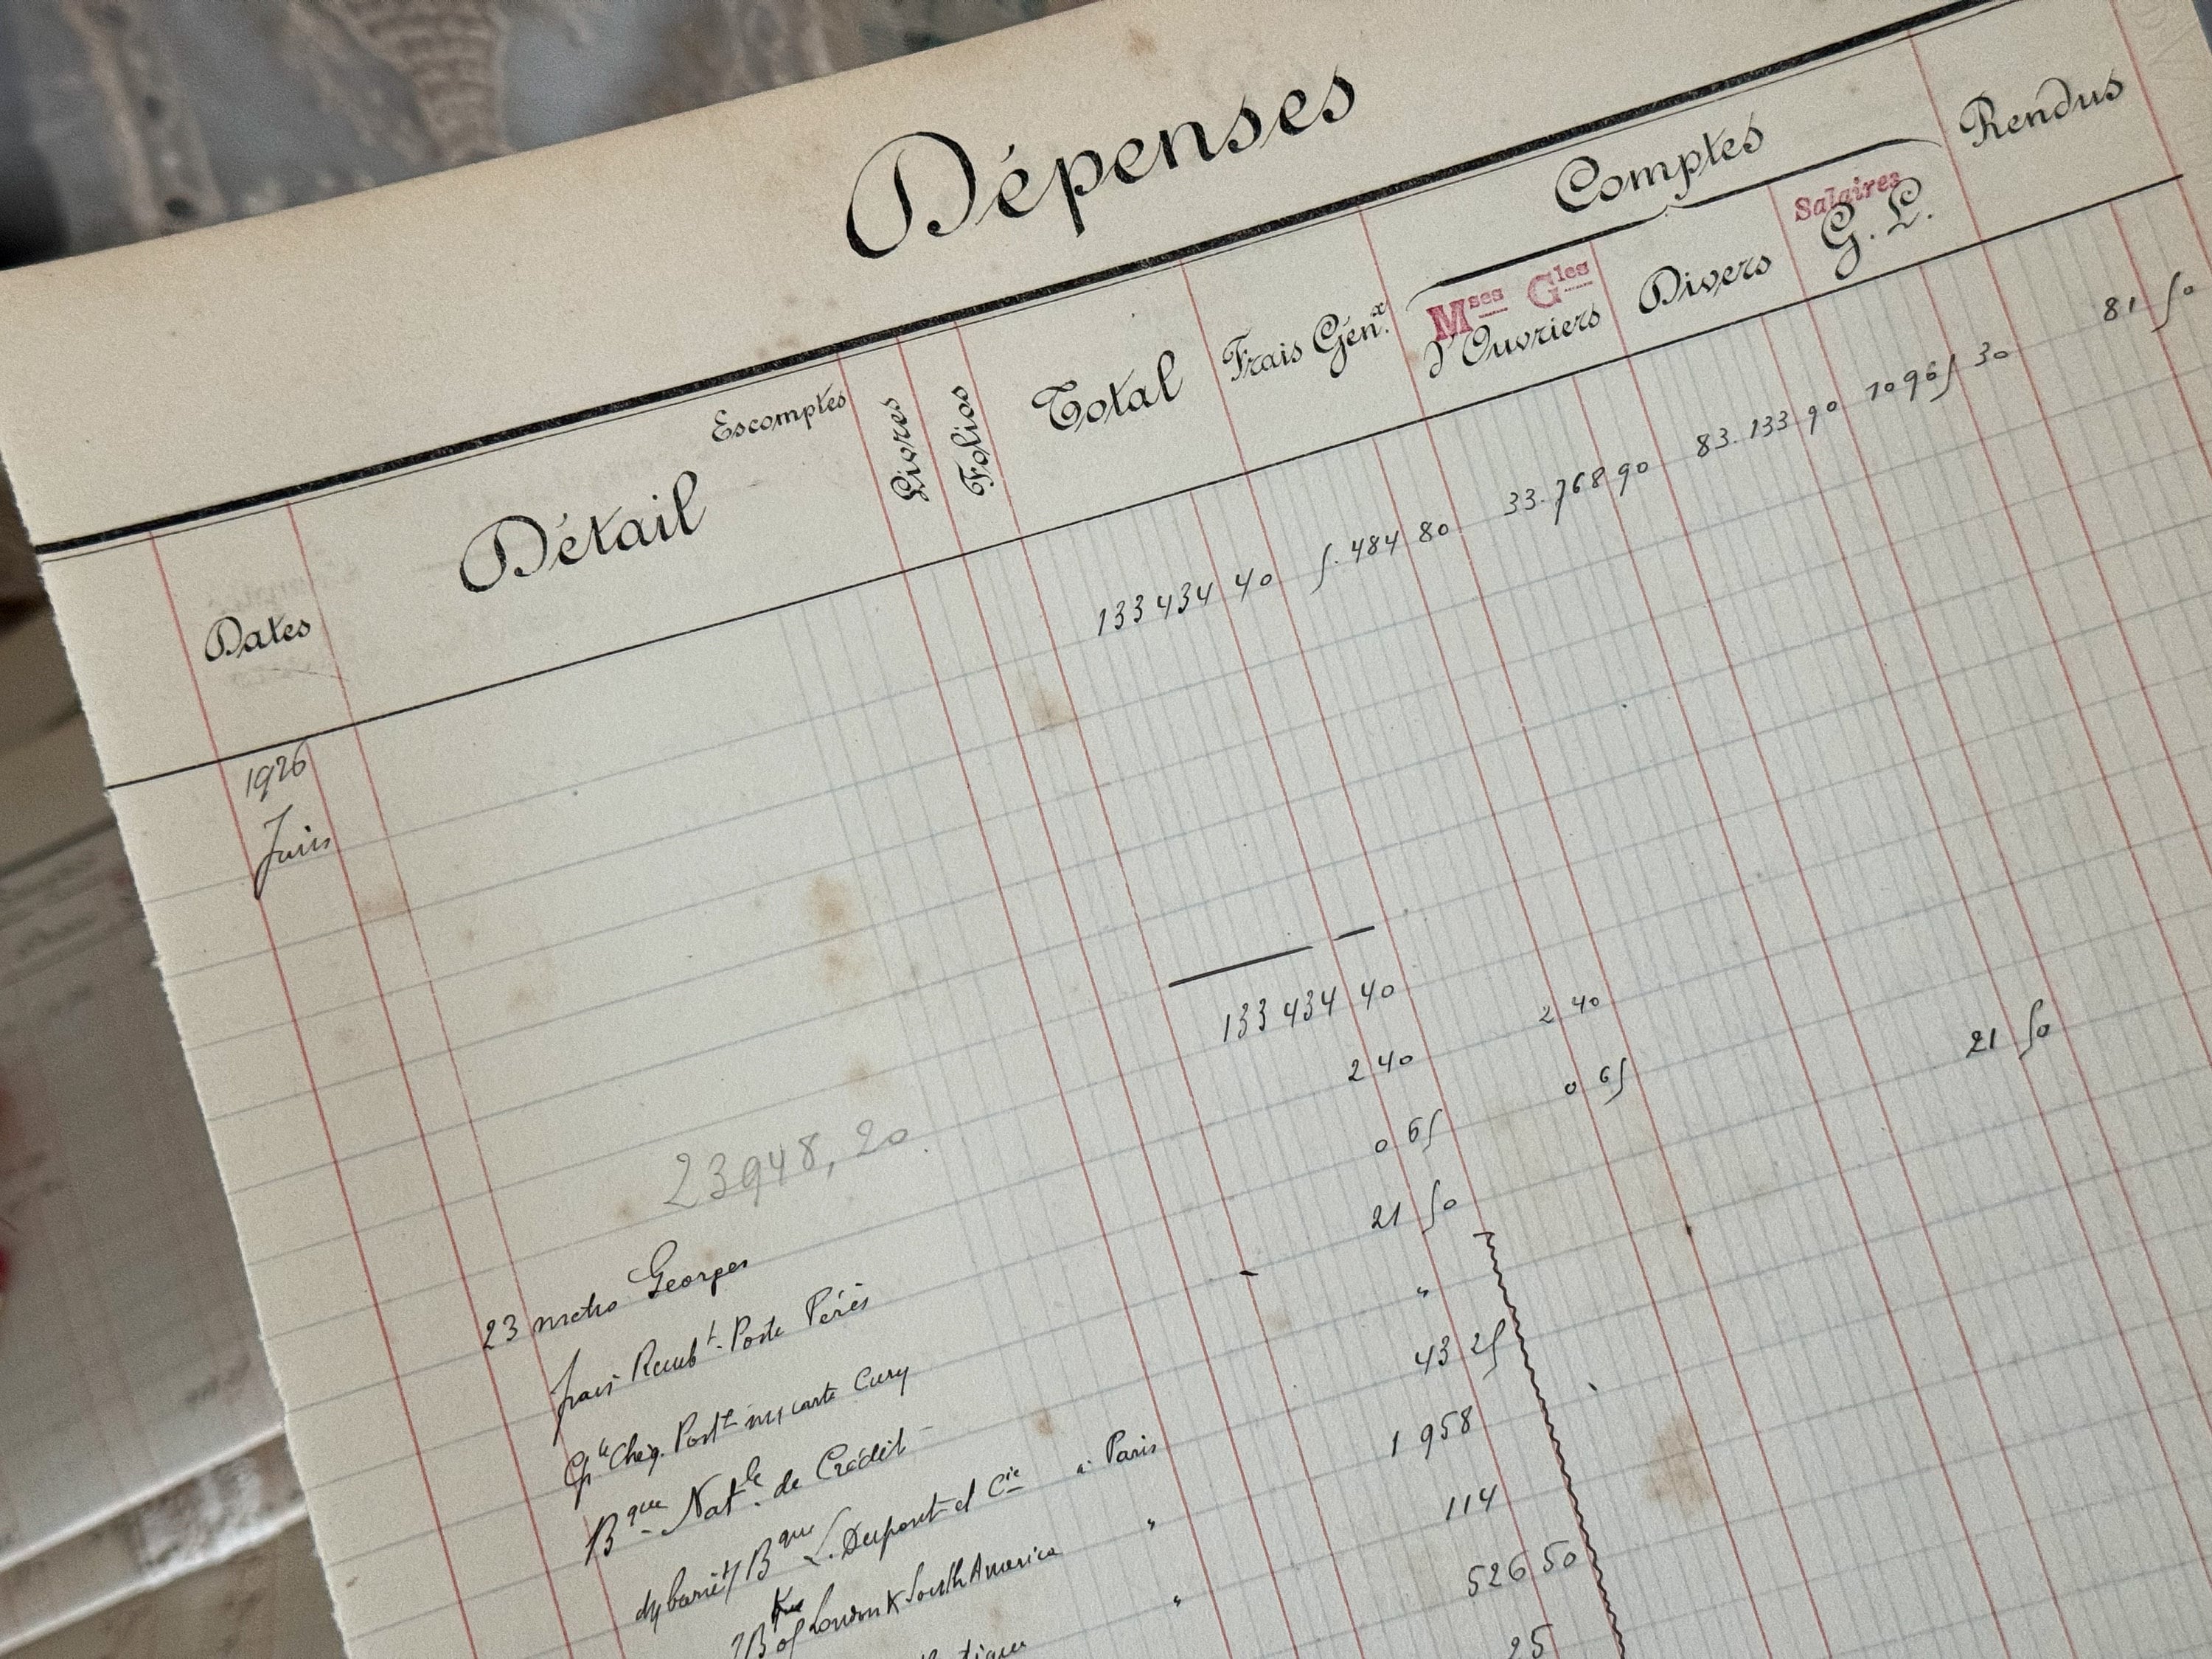 Dépenses
Comptes
Rendus
Salaires
Mses Gles
Dates
Détail
Escomptes
Livres
Folios
Total
Frais Génx.
d'Ouvriers
Divers
G. L.
133 434 40 5.484 80 33.768 90 83.133 90 10965 30 81 50
1926
Juin
133 434 40
23948,20.
23 metro Georges 2 40 2 40
frais Rembt. Poste 0 65 0 65
Chèq. Post 21 50 21 50
Bque Natle. de Crédit "
Bque L. Dupont et Cie à Paris 43 25
of London & South America " 1 958
" 114
526 50
25